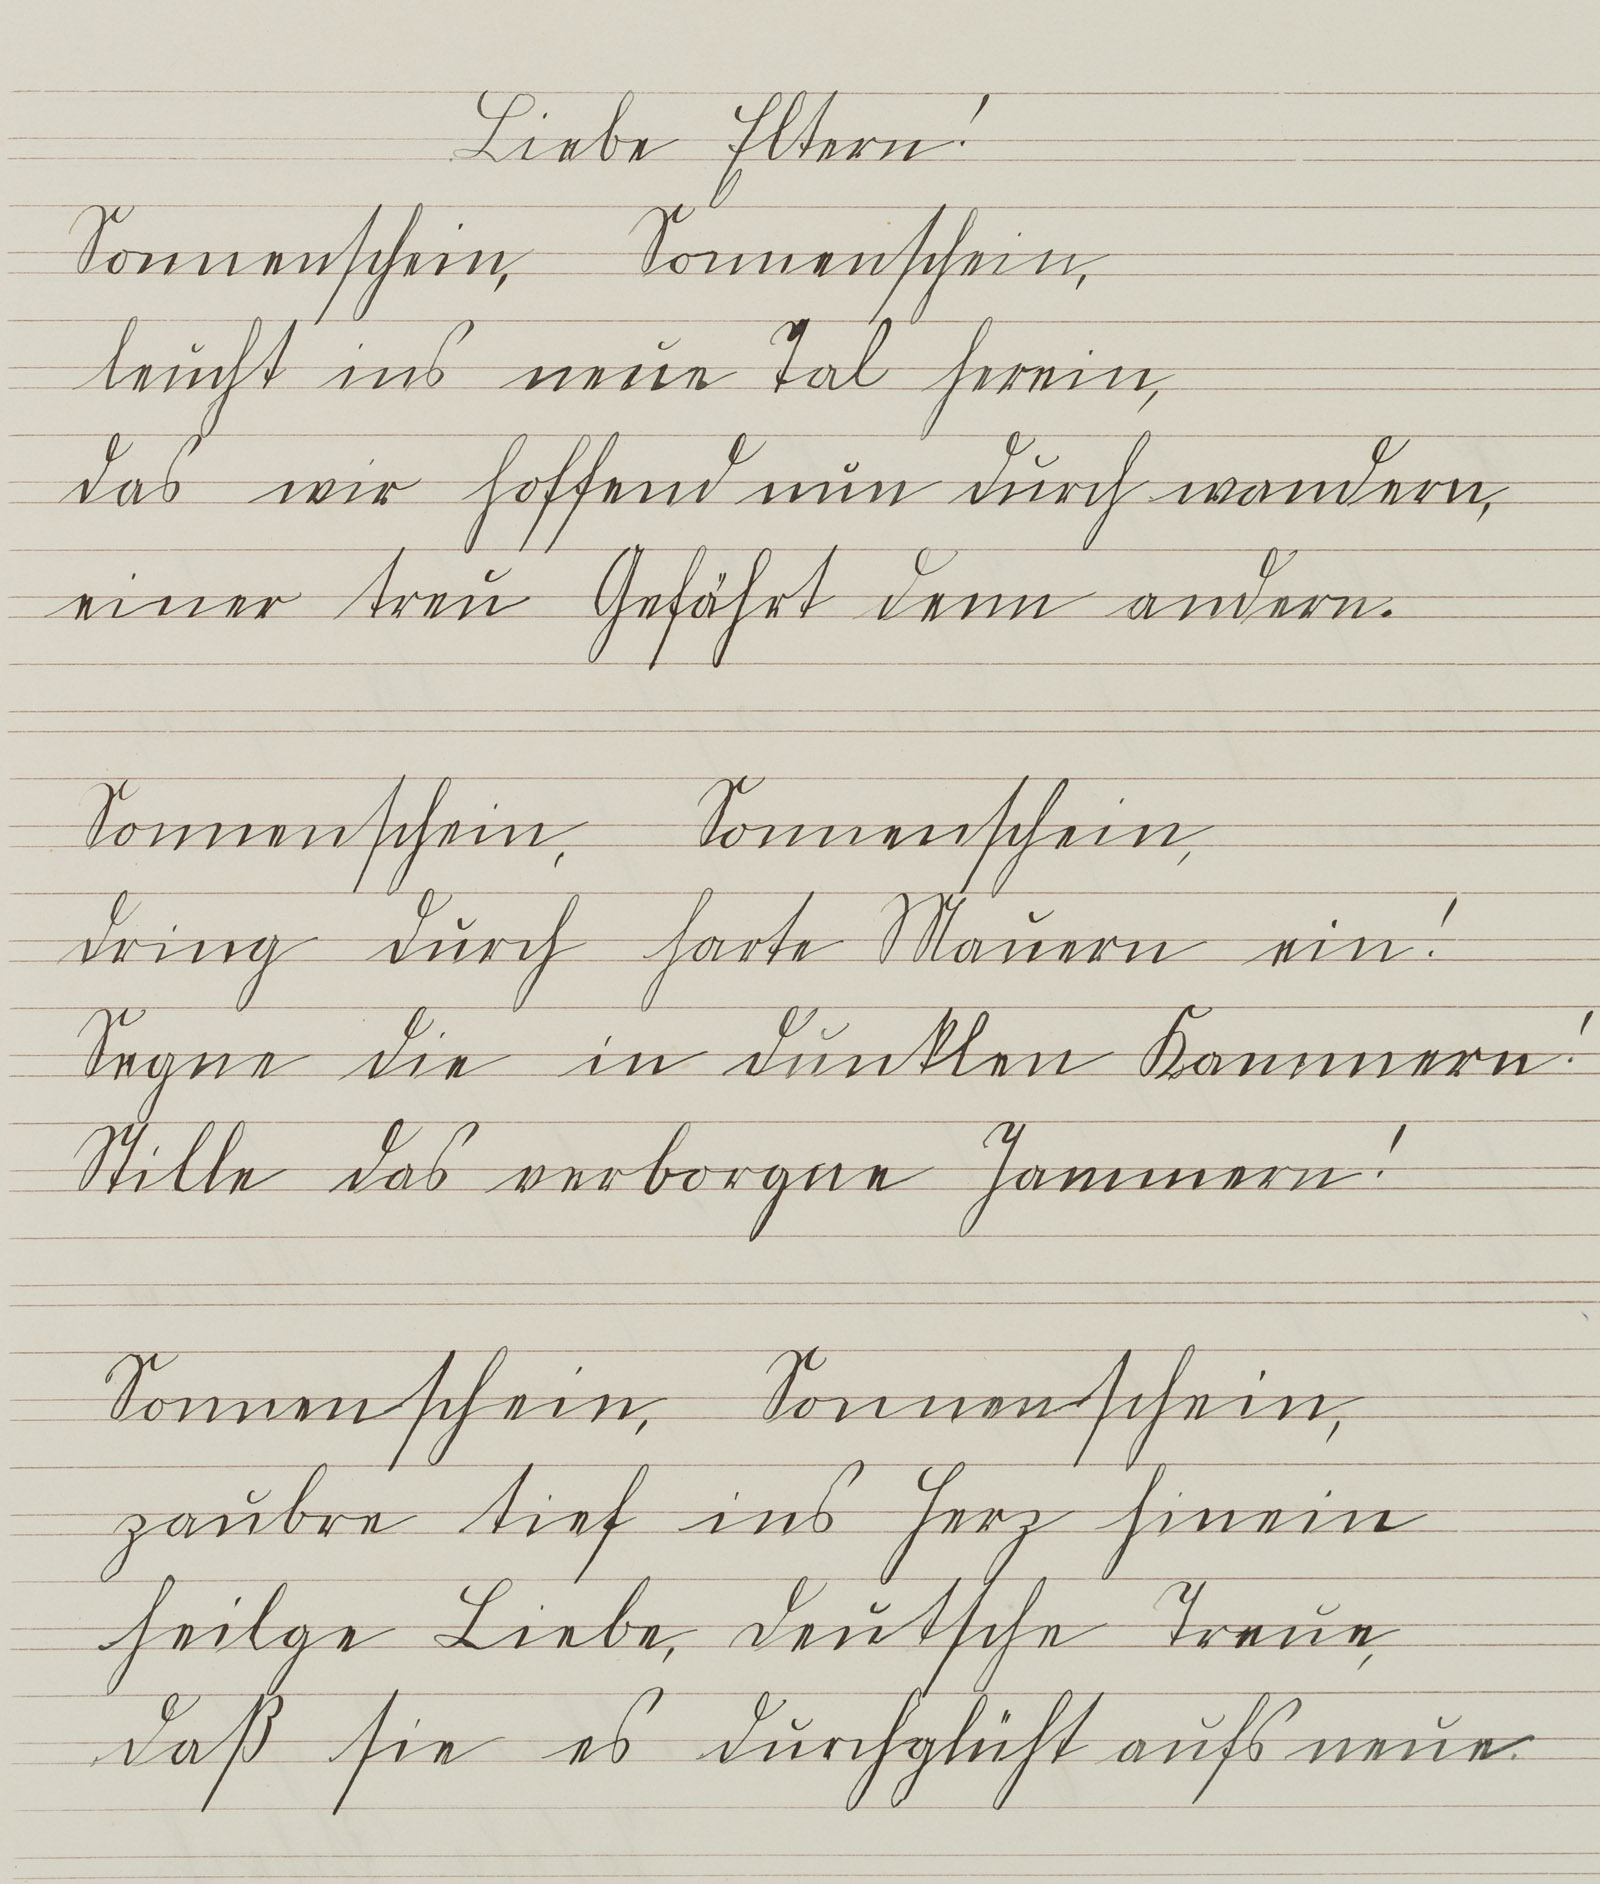 Liebe Eltern!
Sonnenschein, Sonnenschein,
leucht ins neue Tal herein,
das wir hoffend nun durch wandern,
einer treu Gefährt denn andern.
Sonnenschein, Sonnenschein,
dring durch harte Mauern ein!
Segne die in dunklen Kammern!
Stille das verborgne Jammern!
Sonnenschein, Sonnenschein,
zaubre tief ins Herz hinein
heilge Liebe, deutsche Treue,
daß sie es durchglüht aufs neue.